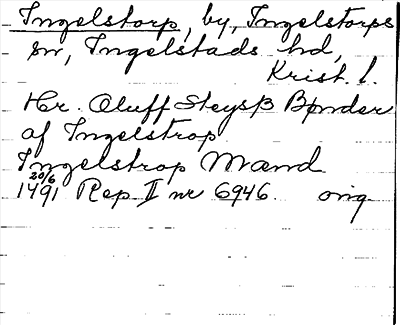 Ingelstorp, by, Ingelstorps
sn, Ingelstads hd,
Krist. l.
Hr. Oluff Steysß Bønder
af Ingelstrop
Ingelstrop Mænd
20/6
1491 Rep. II nr 6946 orig